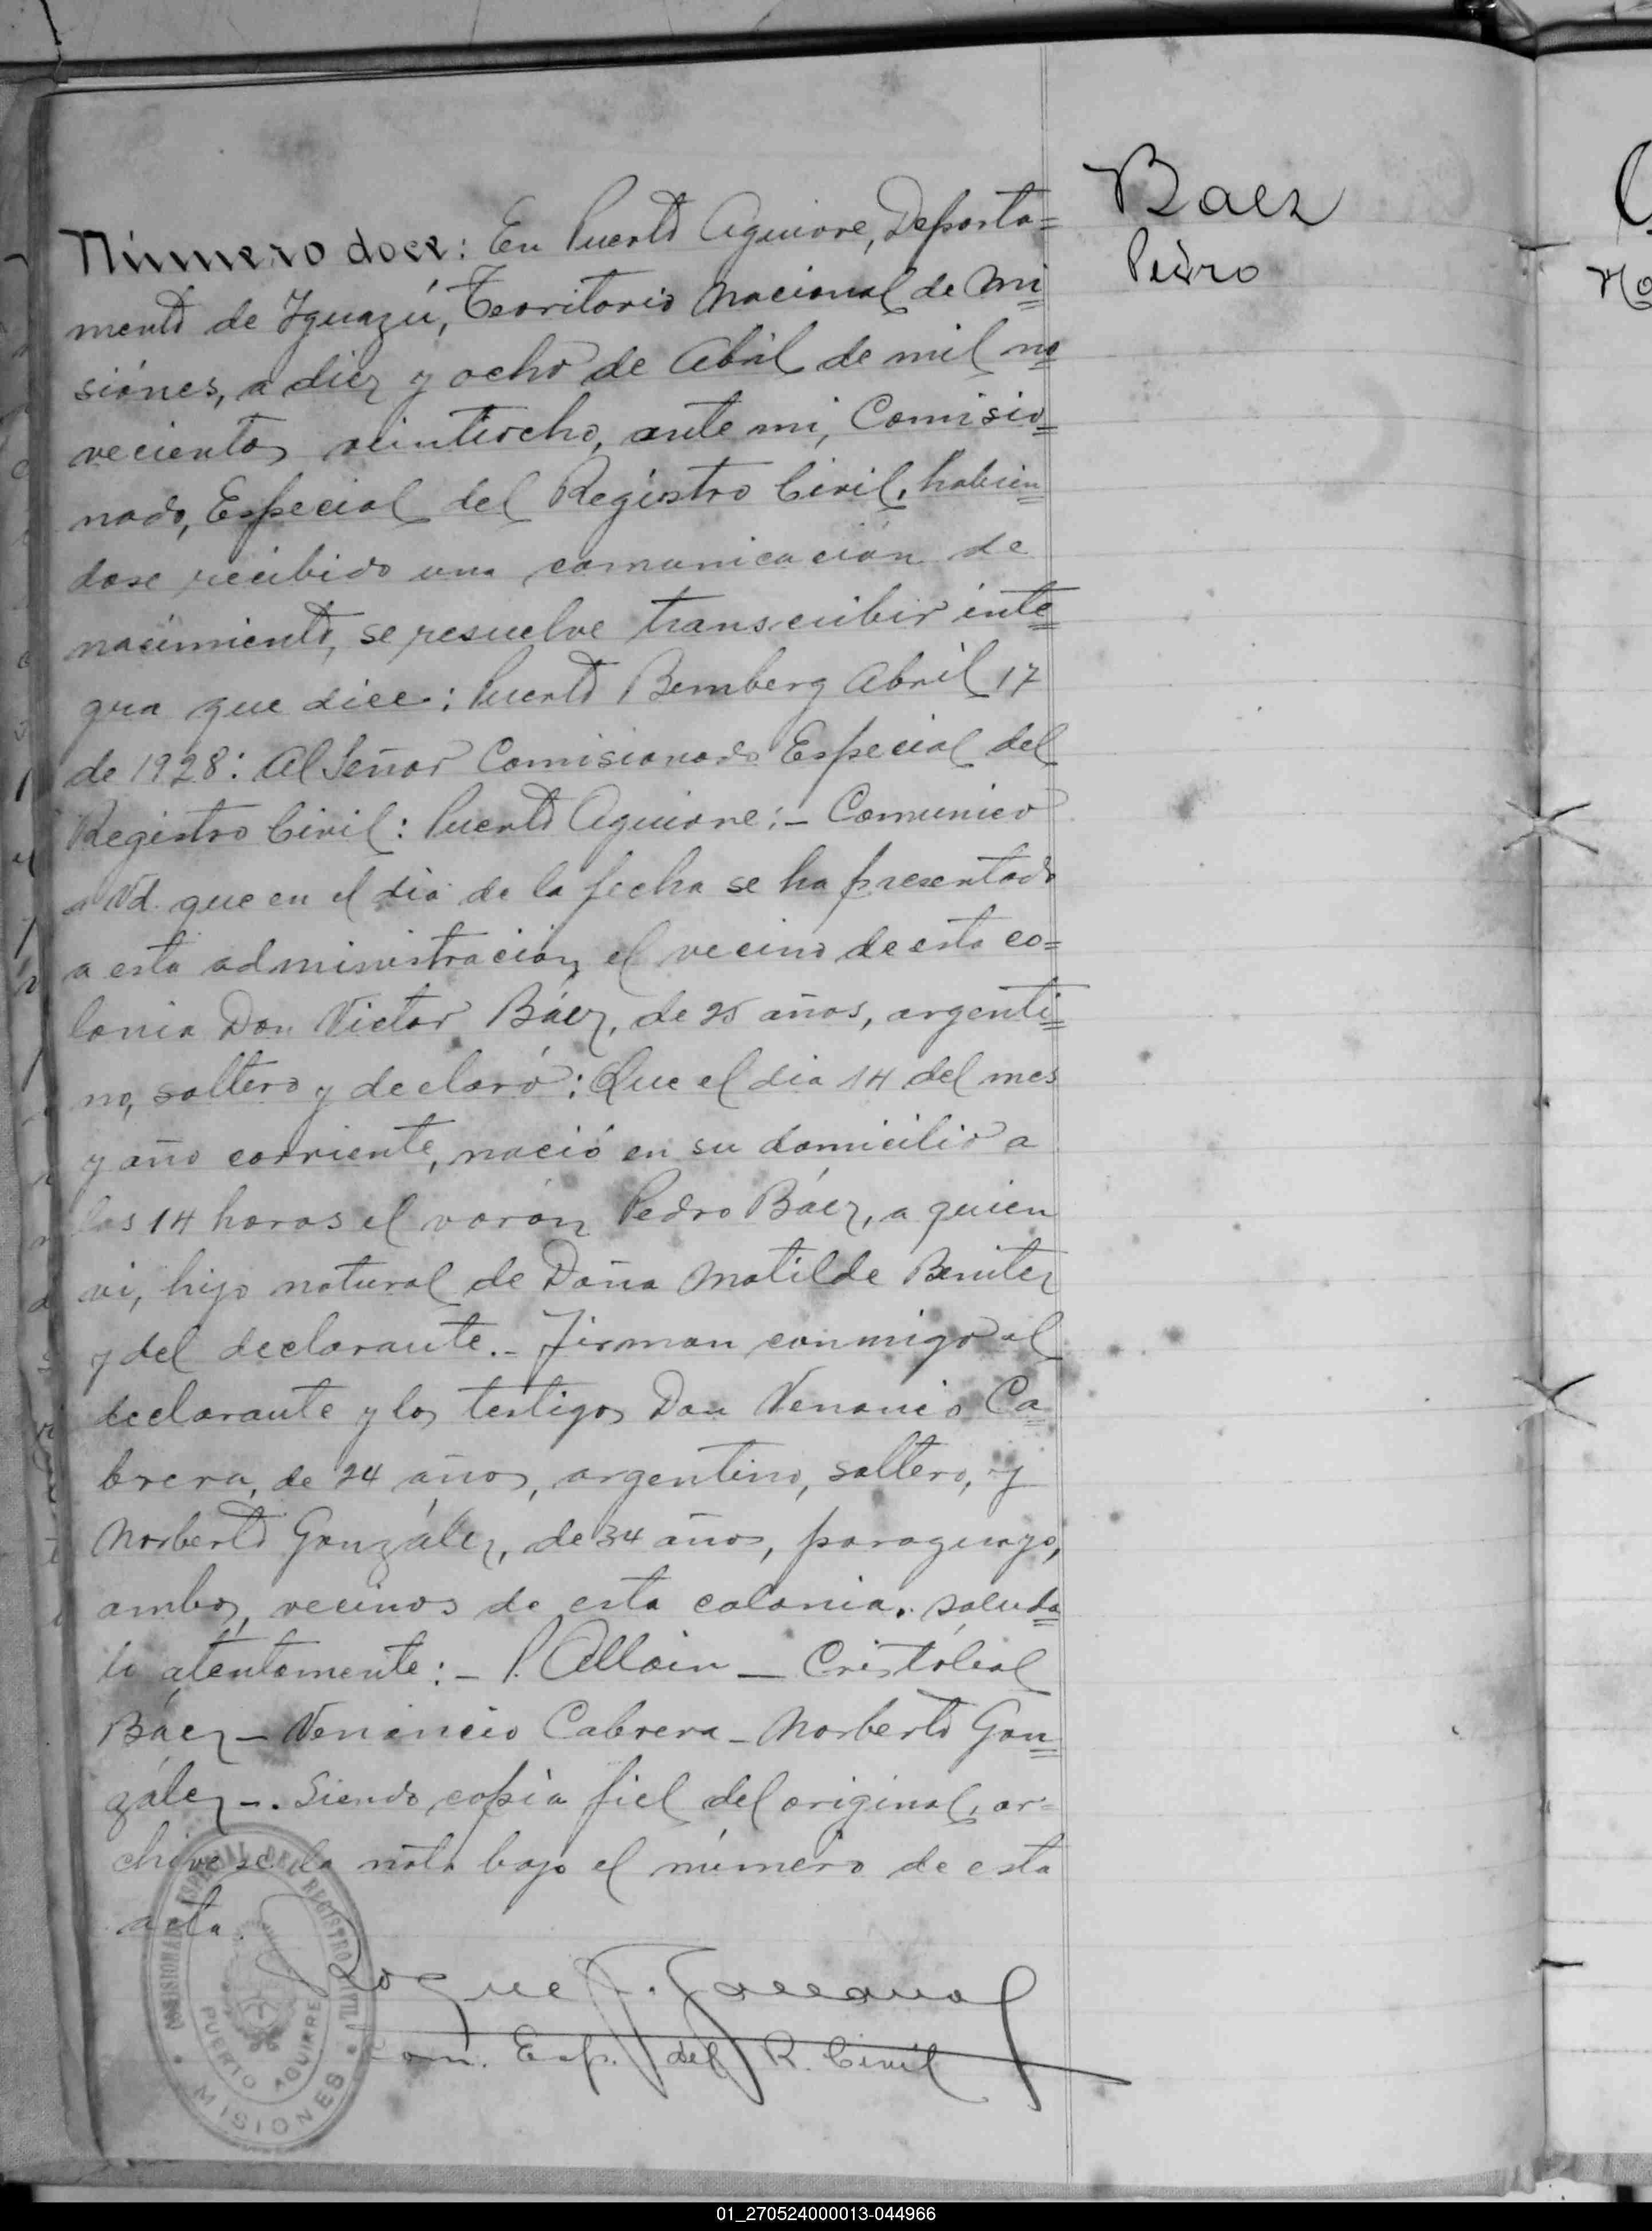 Baez
Pedro
Número doce: En Puerto Aguirre, Departa=
mento de Iguazú, Territorio Nacional de Mi=
siónes, a diez y ocho de Abril de mil no=
vecientos veintiocho, ante mi, Comisio=
nado, Especial del Registro Civil, habien=
dose recibido una comunicación de
nacimiento, se resuelve transcribir inte=
gra que dice: Puerto Bemberg Abril 17
de 1928: Al Señor Comisionado Especial del
Registro Civil: Puerto Aguirre:- Comunico
a Vd. que en el dia de la fecha se ha presentado
a esta administración el vecino de esta co=
lonia Don Victor Báez, de 25 años, argenti=
no, soltero y declaró: Que el dia 14 del mes
y año corriente, nació en su domicilio a
las 14 horas el varón Pedro Báez, a quien
vi, hijo natural de Doña Matilde Benitez
y del declarante.- Firman conmigo el
declarante y los testigos Don Venancio Ca=
brera, de 24 años, argentino, soltero, y
Norberto González, de 34 años, paraguayo,
ambos, vecinos de esta colonia. Saluda=
lo atentamente:- P. Allain - Cristóbal
Báez - Venancio Cabrera - Norberto Gon=
zález -. Siendo copia fiel del original, ar=
chivese la nota bajo el número de esta
acta.
Roque F.
Com. Esp. del R. Civil
COMISIONADO ESPECIAL DEL REGISTRO CIVIL
PUERTO AGUIRRE
MISIONES
01_270524000013-044966